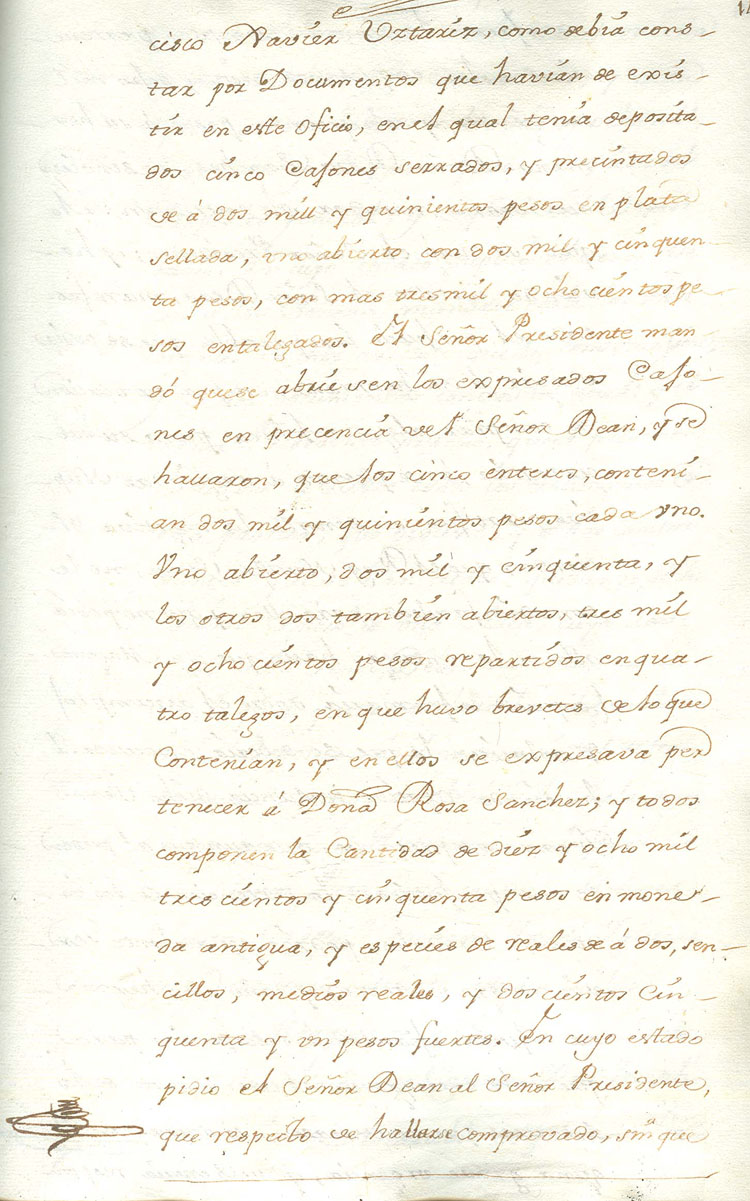 cisco Xavier Uztariz, como debia cons-
tar por Documentos que havian de exis-
tir en este Oficio, en el qual tenia deposita-
dos cinco Casones serrados, y precintados
de á dos mill y quinientos pesos en plata
sellada, vno abierto con dos mil y cinquen
ta pesos, con mas tres mil y ocho cientos pe-
sos entalegados. El Señor Presidente man-
dó que se abriesen los expresados Caso-
nes en precencia del Señor Dean, y se
hallaron, que los cinco enteros, conteni-
an dos mil y quinientos pesos cada vno.
Vno abierto, dos mil y cinquenta, y
los otros dos tambien abiertos, tres mil
y ocho cientos pesos repartidos en qua-
tro talegos, en que huvo brevetes de lo que
Contenian, y en ellos se expresava per
tenecer á Doña Rosa Sanchez; y todos
componen la Cantidad de diez y ocho mil
tres cientos y cinquenta pesos en mone-
da antigua, y especies de reales de á dos, sen-
cillos, medios reales, y dos cientos Cin-
quenta y un pesos fuertes. En cuyo estado
pidio el Señor Dean al Señor Presidente,
que respecto de hallarse comprovado, sin que